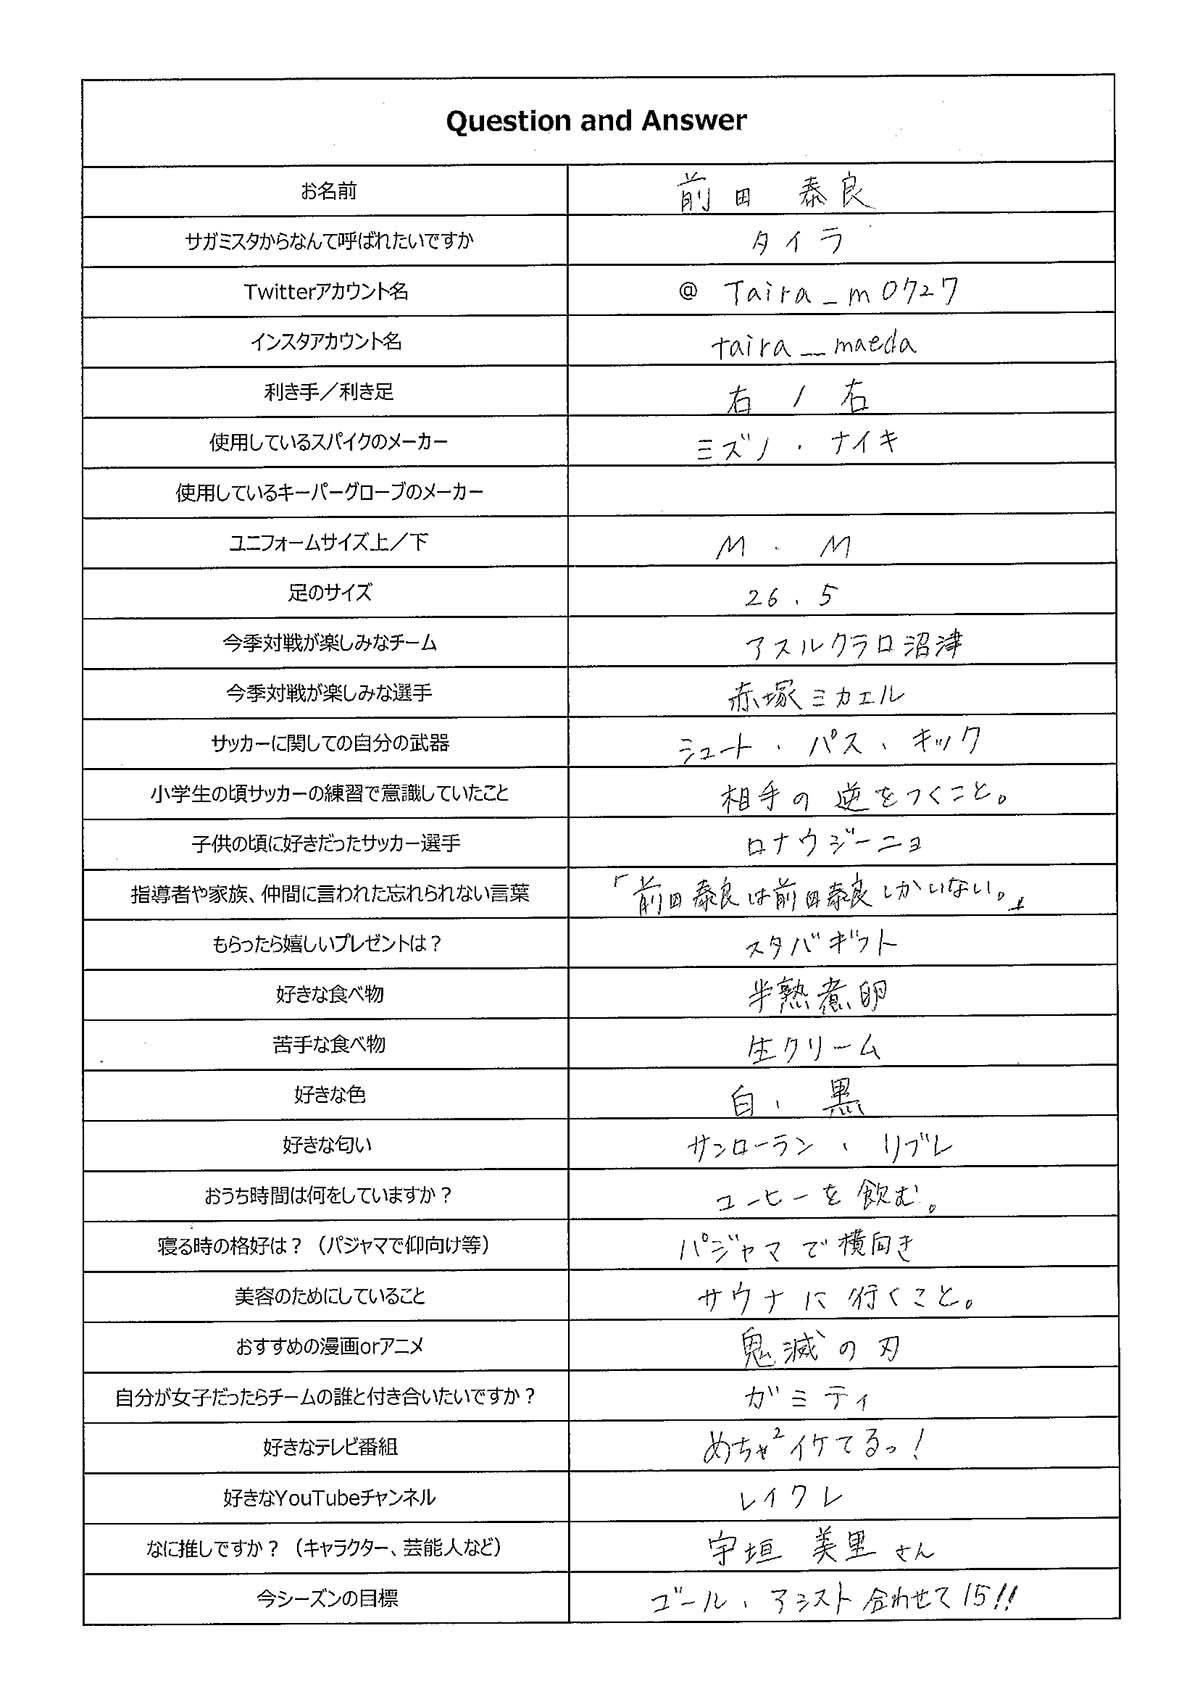 Question and Answer
お名前 前田 泰良
サガミスタからなんて呼ばれたいですか タイラ
Twitterアカウント名 @ Taira_m0727
インスタアカウント名 taira__maeda
利き手／利き足 右 / 右
使用しているスパイクのメーカー ミズノ ・ ナイキ
使用しているキーパーグローブのメーカー
ユニフォームサイズ上／下 M ・ M
足のサイズ 26.5
今季対戦が楽しみなチーム アスルクラロ沼津
今季対戦が楽しみな選手 赤塚ミカエル
サッカーに関しての自分の武器 シュート、パス、キック
小学生の頃サッカーの練習で意識していたこと 相手の逆をつくこと。
子供の頃に好きだったサッカー選手 ロナウジーニョ
指導者や家族、仲間に言われた忘れられない言葉 「前田泰良は前田泰良しかいない。」
もらったら嬉しいプレゼントは？ スタバギフト
好きな食べ物 半熟煮卵
苦手な食べ物 生クリーム
好きな色 白、黒
好きな匂い サンローラン、リブレ
おうち時間は何をしていますか？ コーヒーを飲む。
寝る時の格好は？（パジャマで仰向け等） パジャマで横向き
美容のためにしていること サウナに行くこと。
おすすめの漫画orアニメ 鬼滅の刃
自分が女子だったらチームの誰と付き合いたいですか？ ガミティ
好きなテレビ番組 めちゃ²イケてるっ！
好きなYouTubeチャンネル レイクレ
なに推しですか？（キャラクター、芸能人など） 宇垣 美里さん
今シーズンの目標 ゴール、アシスト合わせて15!!